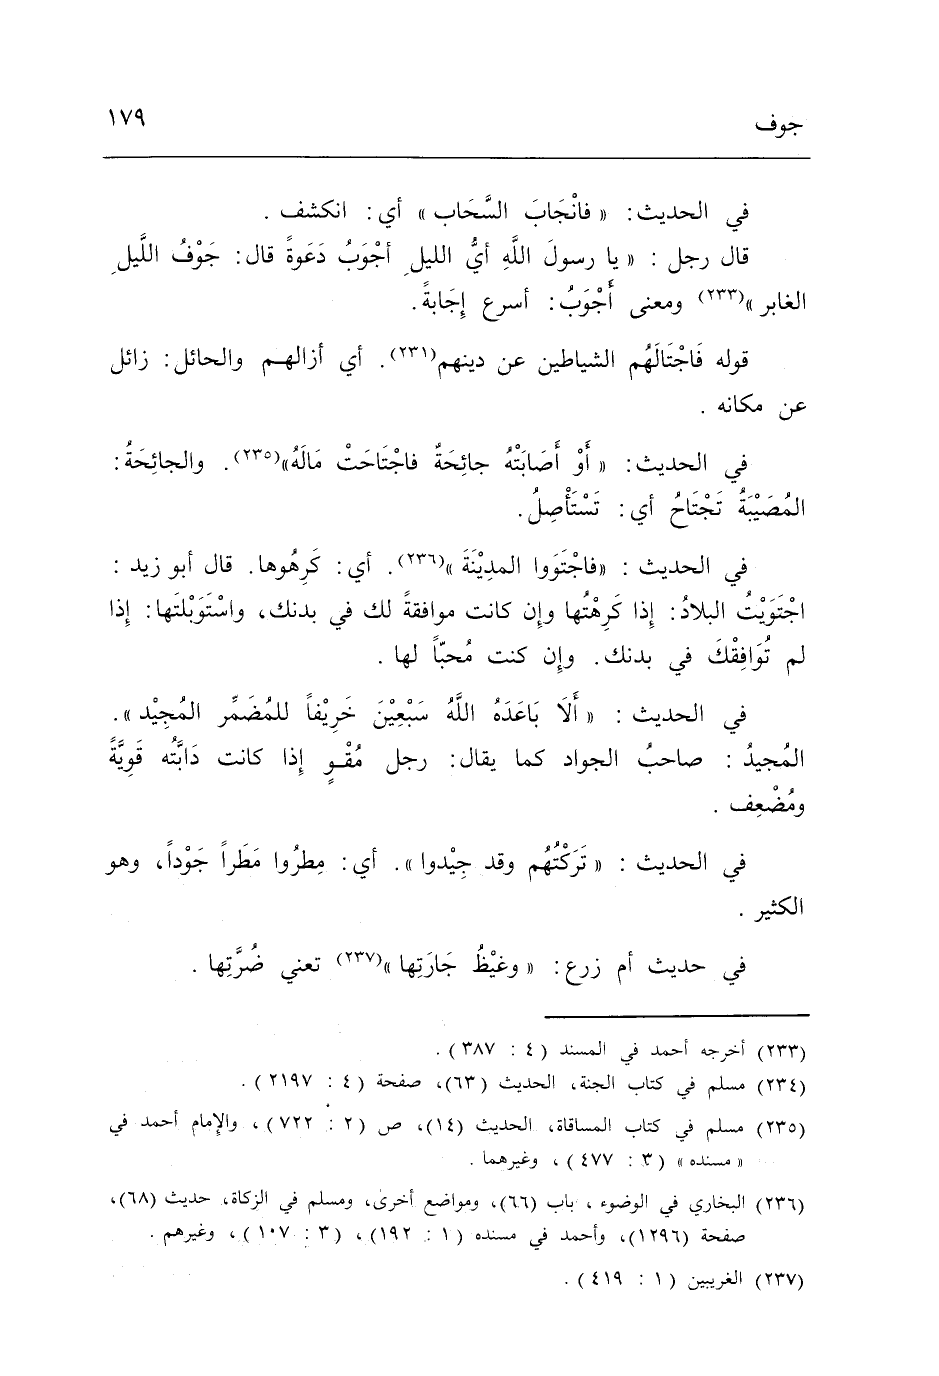 جوف ١٧٩
في الحديث: « فانْجَابَ السَّحَاب » أي: انكشف .
قال رجل : « يا رسولَ اللَّهِ أيُّ الليلِ أجْوَبُ دَعَوةً قال: جَوْفُ اللَّيلِ
الغابر »(٢٣٣) ومعنى أَجْوَبُ: أسرع إِجَابةً.
قوله فَاجْتَالَهُم الشياطين عن دينهم(٢٣١). أي أزالهم والحائل: زائل
عن مكانه .
في الحديث: « أَوْ أَصَابَتْهُ جائِحَةٌ فاجْتَاحَتْ مَالَهُ»(٢٣٥). والجائِحَةُ:
المُصَيْبَةُ تَجْتَاحُ أي: تَسْتَأْصِلُ.
في الحديث : «فاجْتَوَوا المدِيْنَةَ »(٢٣٦). أي: كَرِهُوها. قال أبو زيد :
اجْتَوَيْتُ البلادُ: إِذا كَرِهْتُها وإن كانت موافقةً لك في بدنك، واسْتَوَبْلتَها: إِذا
لم تُوَافِقْكَ في بدنك. وإن كنت مُحبّاً لها .
في الحديث : « أَلَا بَاعَدَهُ اللَّهُ سَبْعِيْنَ خَرِيْفاً للمُضَمِّر المُجِيْد ».
المُجيدُ : صاحبُ الجواد كما يقال: رجل مُقْوٍ إِذا كانت دَابَّتُه قَوِيَّةً
ومُضْعِف .
في الحديث : « تَرَكْتُهُم وقد جِيْدوا ». أي: مِطرُوا مَطَراً جَوْداً، وهو
الكثير .
في حديث أم زرع: « وغيْظُ جَارَتِها »(٢٣٧) تعني ضُرَّتِها .
(٢٣٣) أخرجه أحمد في المسند ( ٤ : ٣٨٧ ) .
(٢٣٤) مسلم في كتاب الجنة، الحديث (٦٣)، صفحة ( ٤ : ٢١٩٧ ) .
(٢٣٥) مسلم في كتاب المساقاة، الحديث (١٤)، ص ( ٢ : ٧٢٢ ) ، والإمام أحمد في
« مسنده » ( ٣ : ٤٧٧ ) ، وغيرهما .
(٢٣٦) البخاري في الوضوء ، باب (٦٦)، ومواضع أخرى، ومسلم في الزكاة، حديث (٦٨)،
صفحة (١٢٩٦)، وأحمد في مسنده ( ١ : ١٩٢) ، ( ٣ : ١٠٧ ) ، وغيرهم .
(٢٣٧) الغريبين ( ١ : ٤١٩ ) .